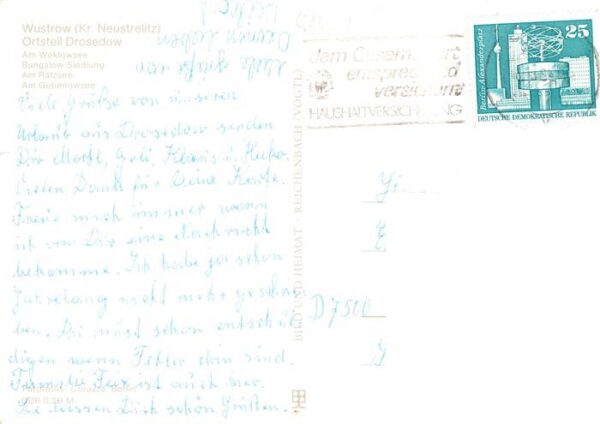 Wustrow (Kr. Neustrelitz)
Ortsteil Drosedow
Am Woklowsee
Bungalow-Siedlung
Am Rätzsee
Am Gobenowsee
Viele Grüße von unseren
Urlaub aus Drosedow senden
Dir Klaus u.
Vielen Dank für Deine Karte.
Freue mich immer wenn
ich von Dir eine Nachricht
bekomme. Ich habe ja schon
Jahrelang nicht mehr geschrie-
ben. Du mußt schon entschul
digen wenn Fehler drin sind.
Familie ist auch hier.
Sie lassen Dich schön Grüßen.
Viele Grüße von
Deinen Lieben
DDR 0,20 M
BILD UND HEIMAT · REICHENBACH (VOGTL)
dem Gesamtwert
entsprechend
versichert
HAUSHALTVERSICHERUNG
25
Berlin-Alexanderplatz
DEUTSCHE DEMOKRATISCHE REPUBLIK
D 7500